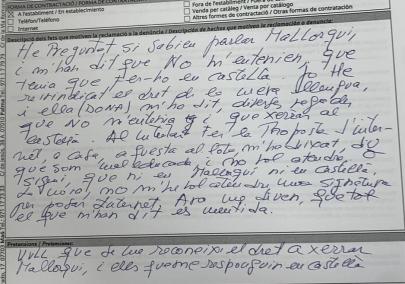 FORMA DE CONTRACTACIÓ / FORMA DE CONTRATACIÓN
A l'establiment / En establecimiento
Telèfon/Teléfono
Internet
Fora de l'establiment /
Venda per catàleg / Venta por catálogo
Altres formes de contractació / Otras formas de contratación
Descripció dels fets que motiven la reclamació o la denúncia / Descripción de hechos que motivan la reclamación o denuncia:
He Preguntat si sabien parlar Mallorquí,
i m'han dit que No m'entenien, que
tenia que fer-ho en castellà. Jo He
reivindicat el dret de la meva llengua,
i ella (DONA) m'ho dit, diferes vegades
que No m'entenia i que xerràs al
castellà. Al intentar fer la
net, a casa, a questa al·lota, m'ho
que som mal educada, i no vol atendre, o
sigui, que ni en Mallorquí ni en castellà.
no m'he vol atendre, una signatura
per posar internet. Ara me diven, que tot
el que m'han dit és mentida.
Pretensions / Pretensiones:
VULL que se me reconeixi el dret a xerrar
Mallorquí, i ells que me responguin en castellà